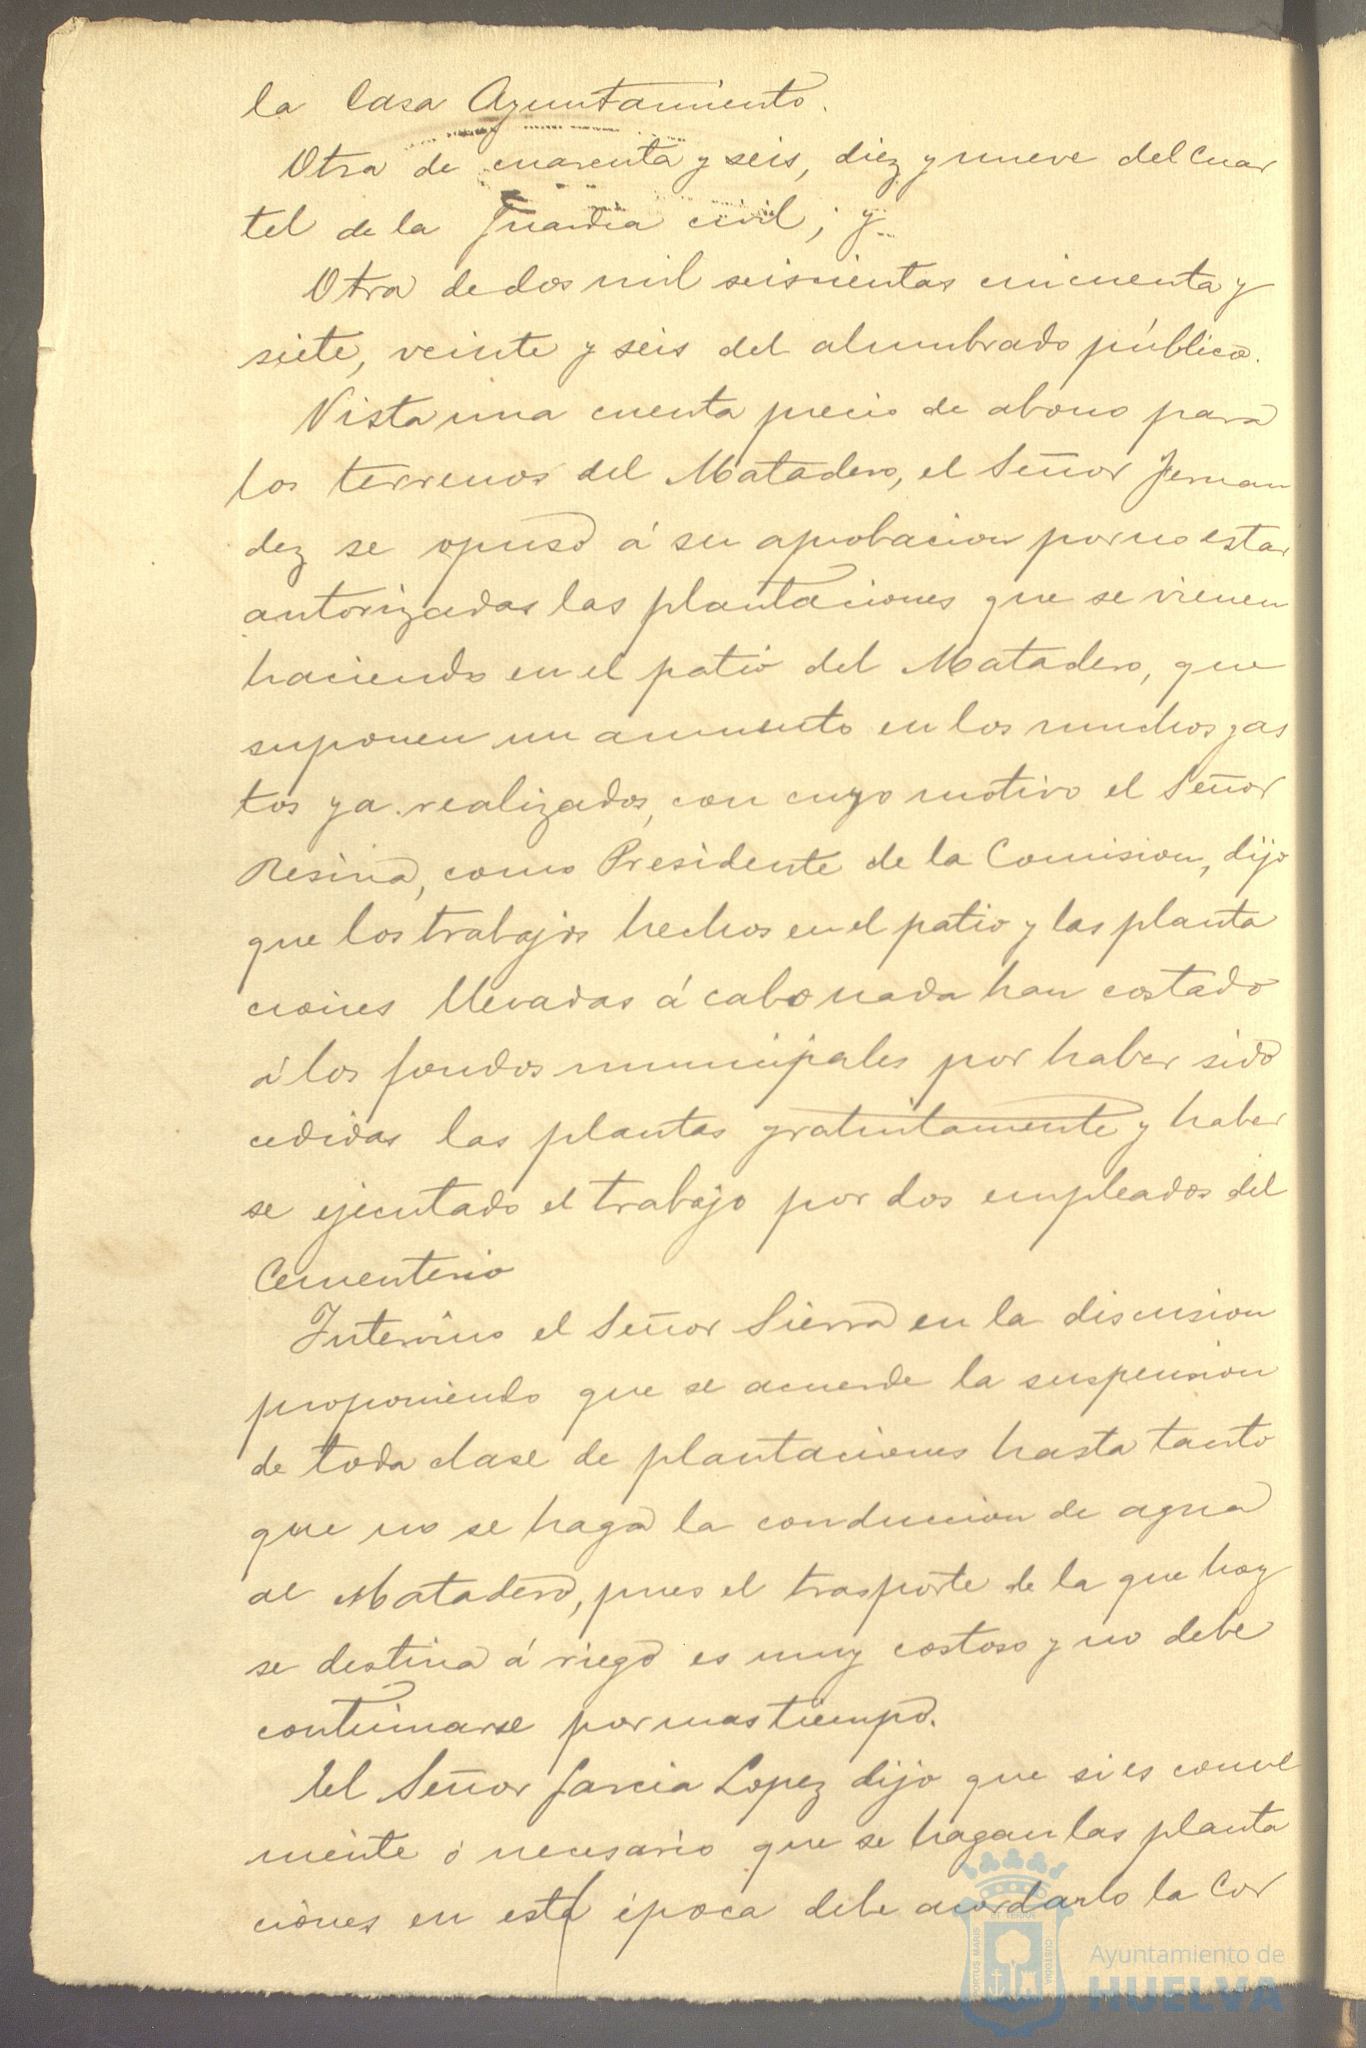 la Casa Ayuntamiento.
Otra de cuarenta y seis, diez y nueve del Cuar
tel de la Guardia civil; y
Otra de dos mil seiscientas cincuenta y
siete, veinte y seis del alumbrado público.
Vista una cuenta precio de abono para
los terrenos del Matadero, el Señor Fernan
dez se opuso á su aprobacion por no estar
autorizadas las plantaciones que se vienen
haciendo en el patio del Matadero, que
suponen un aumento en los muchos gas
tos ya realizados, con cuyo motivo el Señor
Resina, como Presidente de la Comision, dijo
que los trabajos hechos en el patio y las planta
ciones llevadas á cabo nada han costado
á los fondos municipales por haber sido
cedidas las plantas gratuitamente y haber
se ejecutado el trabajo por dos empleados del
Cementerio
Intervino el Señor Sierra en la discusion
proponiendo que se acuerde la suspension
de toda clase de plantaciones hasta tanto
que no se haga la conduccion de agua
al Matadero, pues el trasporte de la que hoy
se destina á riego es muy costoso y no debe
continuarse por mas tiempo.
El Señor Garcia Lopez dijo que si es conve
niente ó necesario que se hagan las planta
ciones en esta época debe acordarlo la Cor
Ayuntamiento de
HUELVA